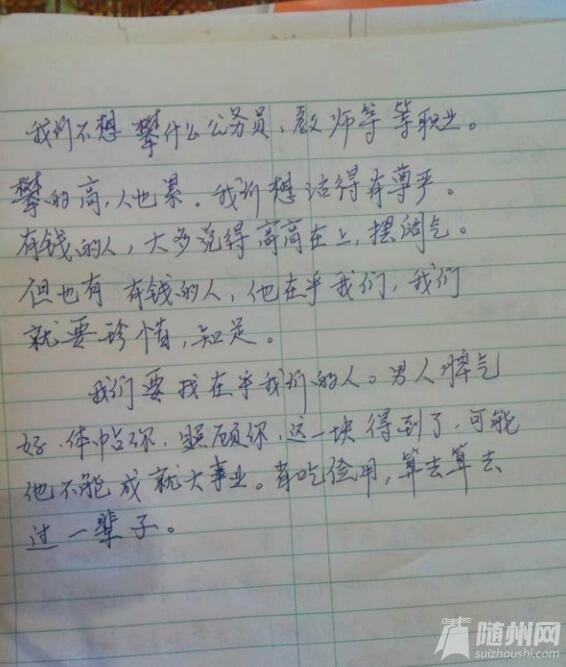 我们不想攀什么公务员,教师等等职业。
攀的高,人也累。我们想活得有尊严。
有钱的人,大多觉得高高在上,摆阔气。
但也有 有钱的人,他在乎我们,我们
就要珍惜,知足。
我们要找在乎我们的人。男人脾气
好.体帖你.照顾你.这一块得到了,可能
他不能成就大事业。省吃俭用,算去算去
过一辈子。
随州网
suizhoushi.com